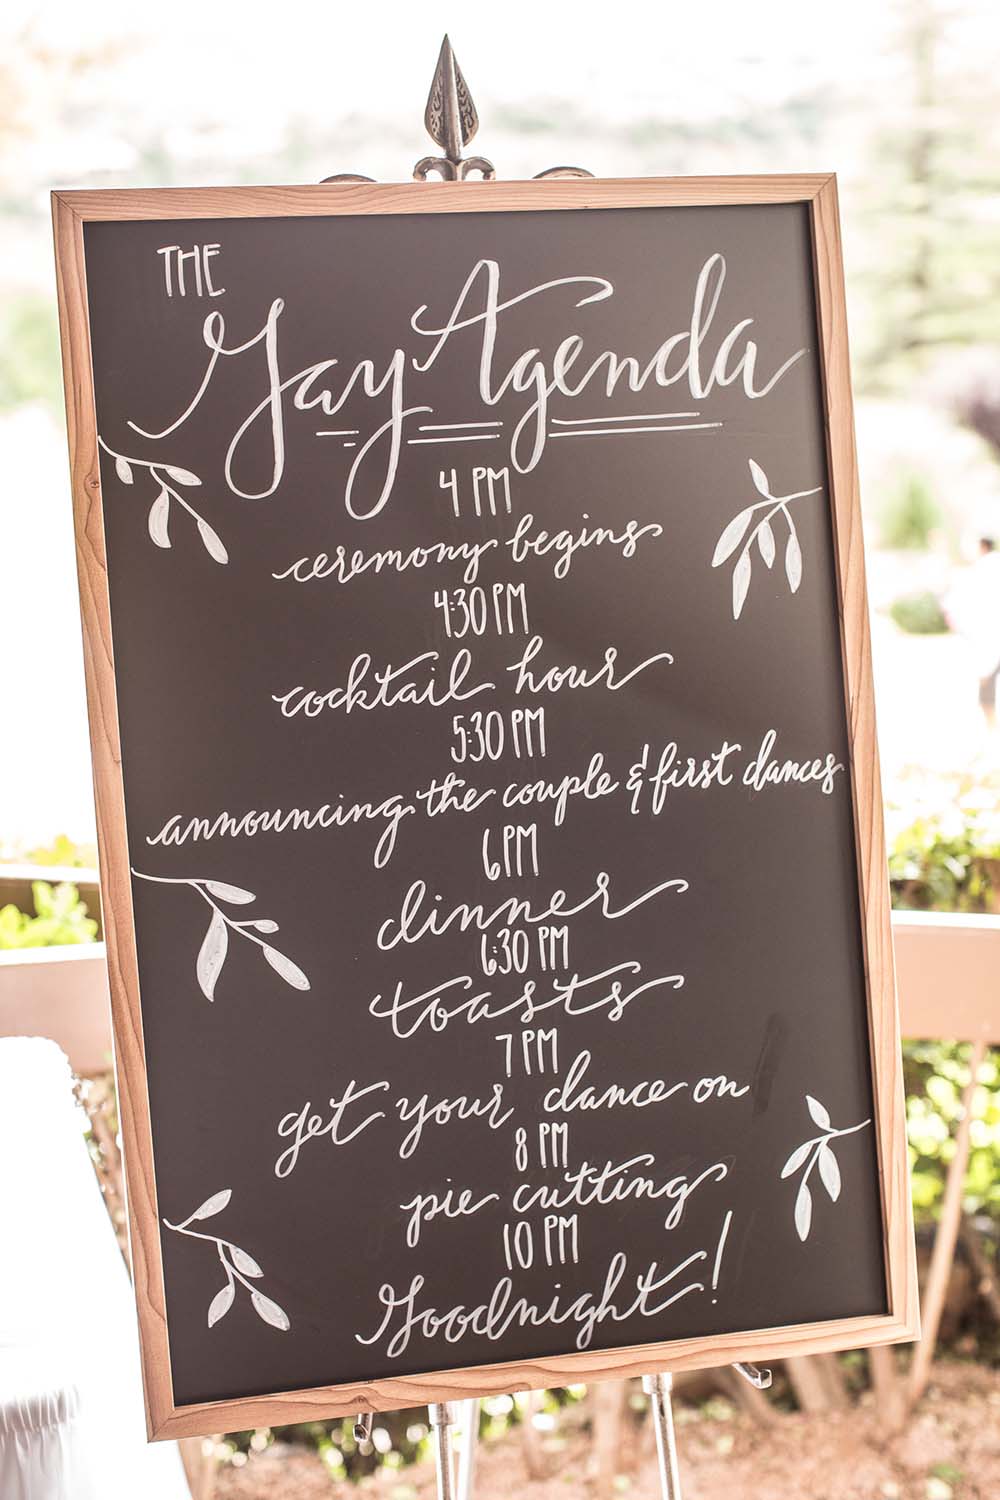 THE
Gay Agenda
4 PM
ceremony begins
4:30 PM
cocktail hour
5:30 PM
announcing the couple & first dances
6 PM
dinner
6:30 PM
toasts
7 PM
get your dance on
8 PM
pie cutting
10 PM
Goodnight!